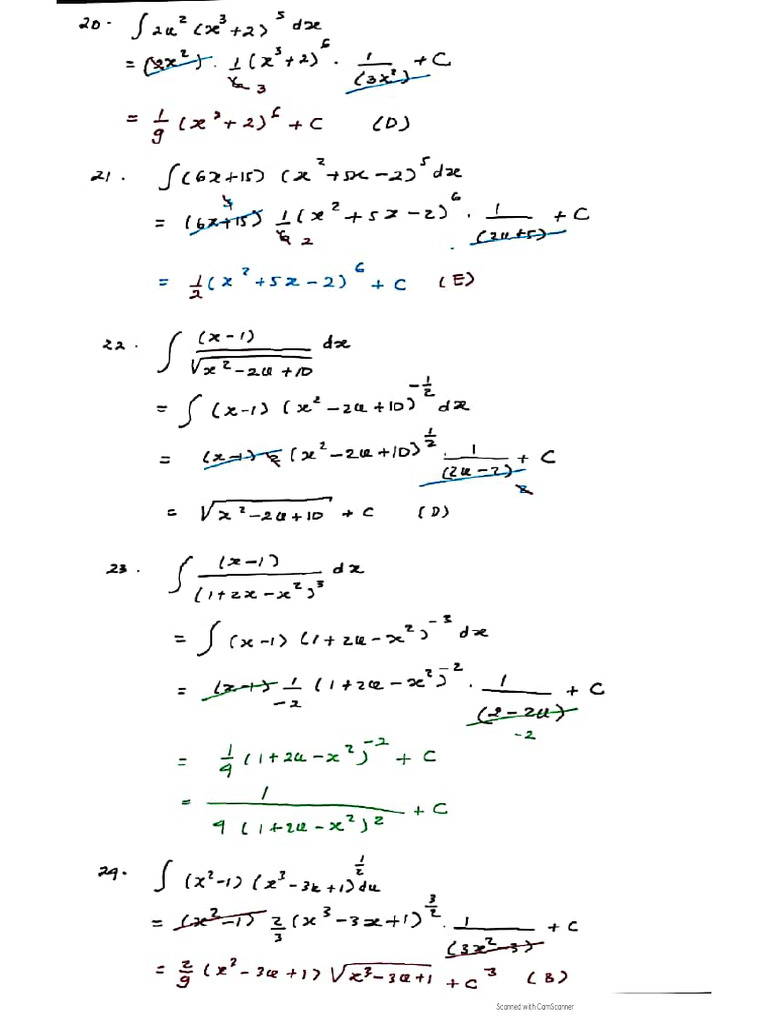 20. ∫ 2x² (x³+2)⁵ dx
= (2x²) · 1/6 (x³+2)⁶ · 1/(3x²) + C
3
= 1/9 (x³+2)⁶ + C (D)
21. ∫ (6x+15) (x²+5x-2)⁵ dx
3
= (6x+15) 1/6 (x²+5x-2)⁶ · 1/(2x+5) + C
2
= 1/2 (x²+5x-2)⁶ + C (E)
22. ∫ (x-1)/√(x²-2x+10) dx
= ∫ (x-1) (x²-2x+10)^(-1/2) dx
= (x-1) 2 (x²-2x+10)^(1/2) · 1/(2x-2) + C
2
= √(x²-2x+10) + C (D)
23. ∫ (x-1)/(1+2x-x²)³ dx
= ∫ (x-1) (1+2x-x²)⁻³ dx
= (x-1) 1/-2 (1+2x-x²)⁻² · 1/(2-2x) + C
-2
= 1/4 (1+2x-x²)⁻² + C
= 1/(4(1+2x-x²)²) + C
24. ∫ (x²-1) (x³-3x+1)^(1/2) dx
= (x²-1) 2/3 (x³-3x+1)^(3/2) · 1/(3x²-3) + C
3
= 2/9 (x³-3x+1) √(x³-3x+1) + C (B)
Scanned with CamScanner